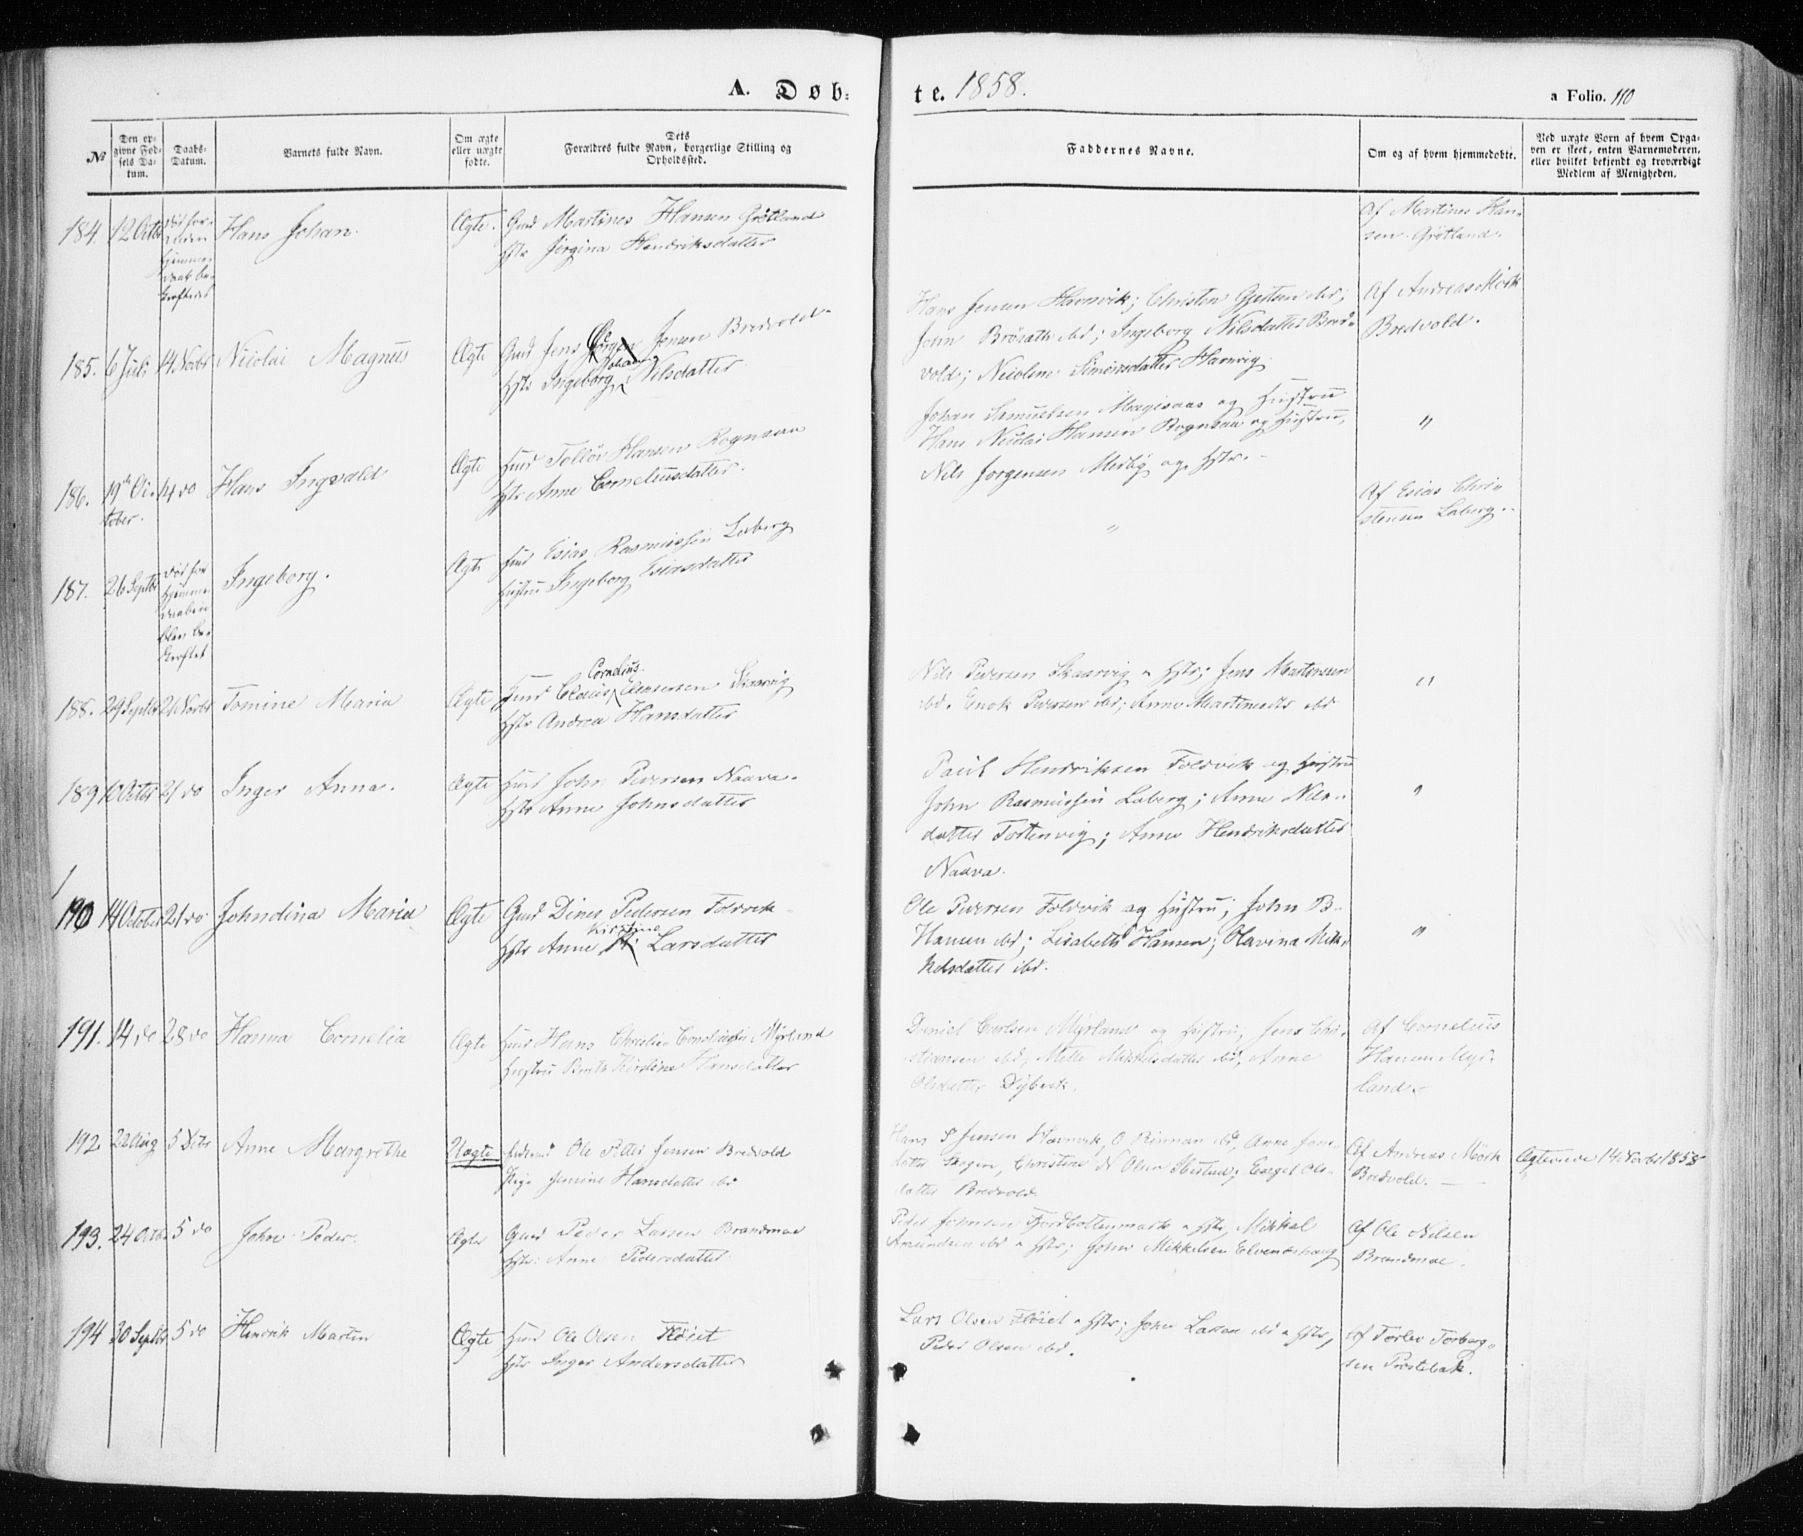 A. Døb:
te. 1858.
a Folio. 110
№
Den op-
givne Fød-
sels Da-
tum.
Daabs-
Datum.
Barnets fulde Navn.
Om ægte
eller uægte
fødte.
Dets
Forældres fulde Navn, borgerlige Stilling og
Opholdssted.
Faddernes Navne.
Om og af hvem hjemmedøbte.
Ved uægte Børn af hvem Opga-
ven er skeet, enten Barnemoderen,
eller hvilket bekjendt og troværdigt
Medlem af Menigheden.
184. 12 Octbr
død før-
inden
hjemme-
daab be-
kræftedes
Hans Johan.
Ægte.
Gmd Martines Hansen Grötland
Hstr Jörgina Hendriksdatter
Af Martines Han-
sen Grötland.
185. 6 Juli 14 Novbr Nicolai Magnus
Ægte
Gmd Jens Jörgen Jensen Bredvold.
Hstr Ingeborg Johanna Nilsdatter
Hans Jensen Havnvik; Christen Gjetsen ibd;
John Brösath ibd; Ingeborg Nilsdatter Bred-
vold; Nicoline Simonsdatter Havnvig.
Af Andreas Mörk
Bredvold.
186. 19de Oc-
tober.
14 do Hans Ingvald
Ægte
Husd Tollöv Hansen Rognsaa
Hstr Anne Corneliusdatter.
Johan Samuelsen Magisaas og Hustru
Hans Nicolai Hansen Rognsaa og Hustru,
Nils Jörgensen Medby og Hstr.
"
187. 26 Septbr
død før
hjemme-
daaben
blev be-
kræftet
Ingeborg.
Ægte
Husd Esias Rasmussen Laberg
Hustru Ingeborg Esiasdatter
"
Af Esias Chri-
stensen Laberg.
188. 29 Septbr 21 Novbr Tomine Maria
Ægte
Husd Claus Cornelius Clausen Skaarvig
Hstr Andrea Hansdatter
Nils Pedersen Skaarvig & Hstr; Jens Mortensen
ibd. Enok Pedersen ibd; Anne Martinsdtr ibd
"
189 10 Octbr 21 do Inger Anna.
Ægte
Husd John Pedersen Naava.
Hstr Anne Johnsdatter
Paul Hendriksen Foldvik og Hustru
John Rasmussen Laberg; Anne Nils-
datter Tostenvig; Anne Hendriksdatter
Naava.
"
190 14 October 21 do Johndina Maria
Ægte
Gmd Dines Pedersen Foldvik
Hstr Anne Kirstine Larsdatter
Ole Pedersen Foldvik og Hustru; John B.
Hansen ibd; Lisabeth Hansen; Olavina Mik-
kelsdatter ibd.
"
191. 14 do 28 do Hanna Cornelia
Ægte
Husd Hans Christian Corneliussen Myrland
Hustru Berte Kirstine Hansdatter
Daniel Carlsen Myrland og Hustru; Jens Chri-
stiansen ibd; Mette Mikkelsdatter ibd; Anne
Olsdatter Dybvik.
Af Cornelius
Hansen Myr-
land.
192 22 Aug 5 Dcbr Anne Margrethe
Uægte
Ole Peter Jensen Bredvold
Pige Jensine Hansdatter ibd
Hans P Jensen Havnvik, O Rinnan ibd, Anne Jons-
datter Skogen, Christine N Olsen Hestad; Engel Ols-
datter Bredvold
Af Andreas Mörk
Bredvold.
Ægteviede 14 Novbr 1858
193. 24 Octbr 5 do John Peder.
Ægte
Gmd Peder Larsen Brandmoe
Hstr: Anne Pedersdatter
Peder Johnsen Fjordbottenmark & Hstr, Mikkal
Amundsen ibd & Hstr; John Mikkelsen Elvenæshaug
Af Ole Nilsen
Brandmoe.
194 30 Septbr 5 do Hendrik Martin
Ægte
Husd Ole Olsen Flöiet
Hstr Inger Andersdatter
Lars Olsen Flöiet & Hstr; John Larsen ibd & Hstr,
Peder Olsen ibd.
Af Torlev Torberg-
sen Prostebak.